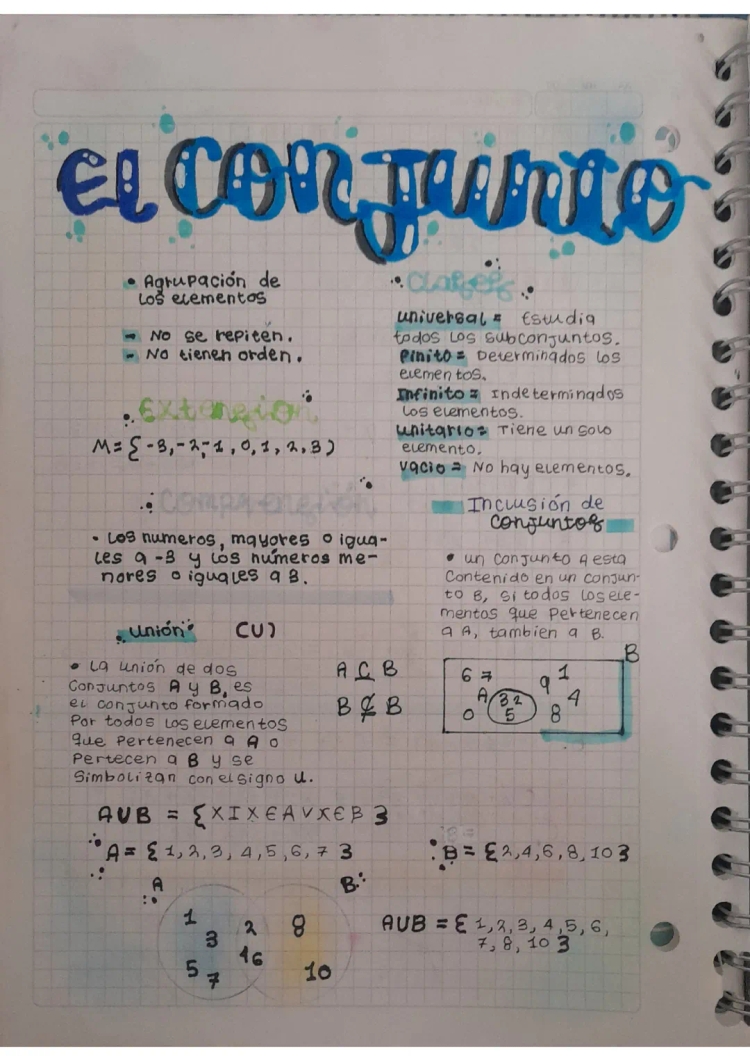 EL CONJUNTO
• Agrupación de
los elementos
- No se repiten.
- No tienen orden.
Extension
M= { -3,-2,-1, 0, 1, 2, 3 )
Comprensión
• Los numeros, mayores o igua-
les a -3 y los números me-
nores o iguales a 3.
Clases
Universal = Estudia
todos los subconjuntos.
Finito = Determinados los
elementos.
Infinito = Indeterminados
los elementos.
Unitario = Tiene un solo
elemento.
Vacio = No hay elementos.
Inclusión de
Conjuntos
• un conjunto A esta
Contenido en un conjun-
to B, si todos los ele-
mentos que Pertenecen
a A, tambien a B.
Unión (U)
• La unión de dos
Conjuntos A y B, es
el conjunto formado
Por todos los elementos
que Pertenecen a A o
Pertecen a B y se
Simbolizan con el signo U.
A ⊆ B
B ⊈ B
B
6 7 9 1
A 3 2 4
0 5 8
AUB = {X I X ∈ A V X ∈ B }
A = { 1, 2, 3, 4, 5, 6, 7 }
B = { 2, 4, 6, 8, 10 }
A B
1 2 8
3
5 7 16 10
AUB = { 1, 2, 3, 4, 5, 6,
7, 8, 10 }